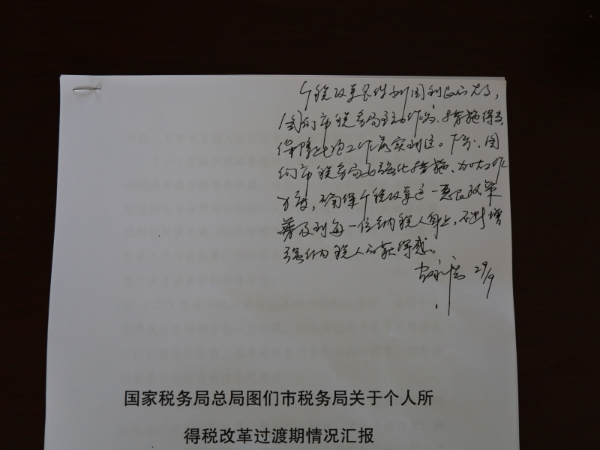 个税改革是件利国利民的大事，
图们市税务局主动作为、措施得当
保障此项工作落实到位。下步，图
们市税务局要强化措施、加大工作
力度，确保个税改革这一惠民政策
普及到每一位纳税人身上，不断增
强纳税人的获得感。
29/9
国家税务局总局图们市税务局关于个人所
得税改革过渡期情况汇报